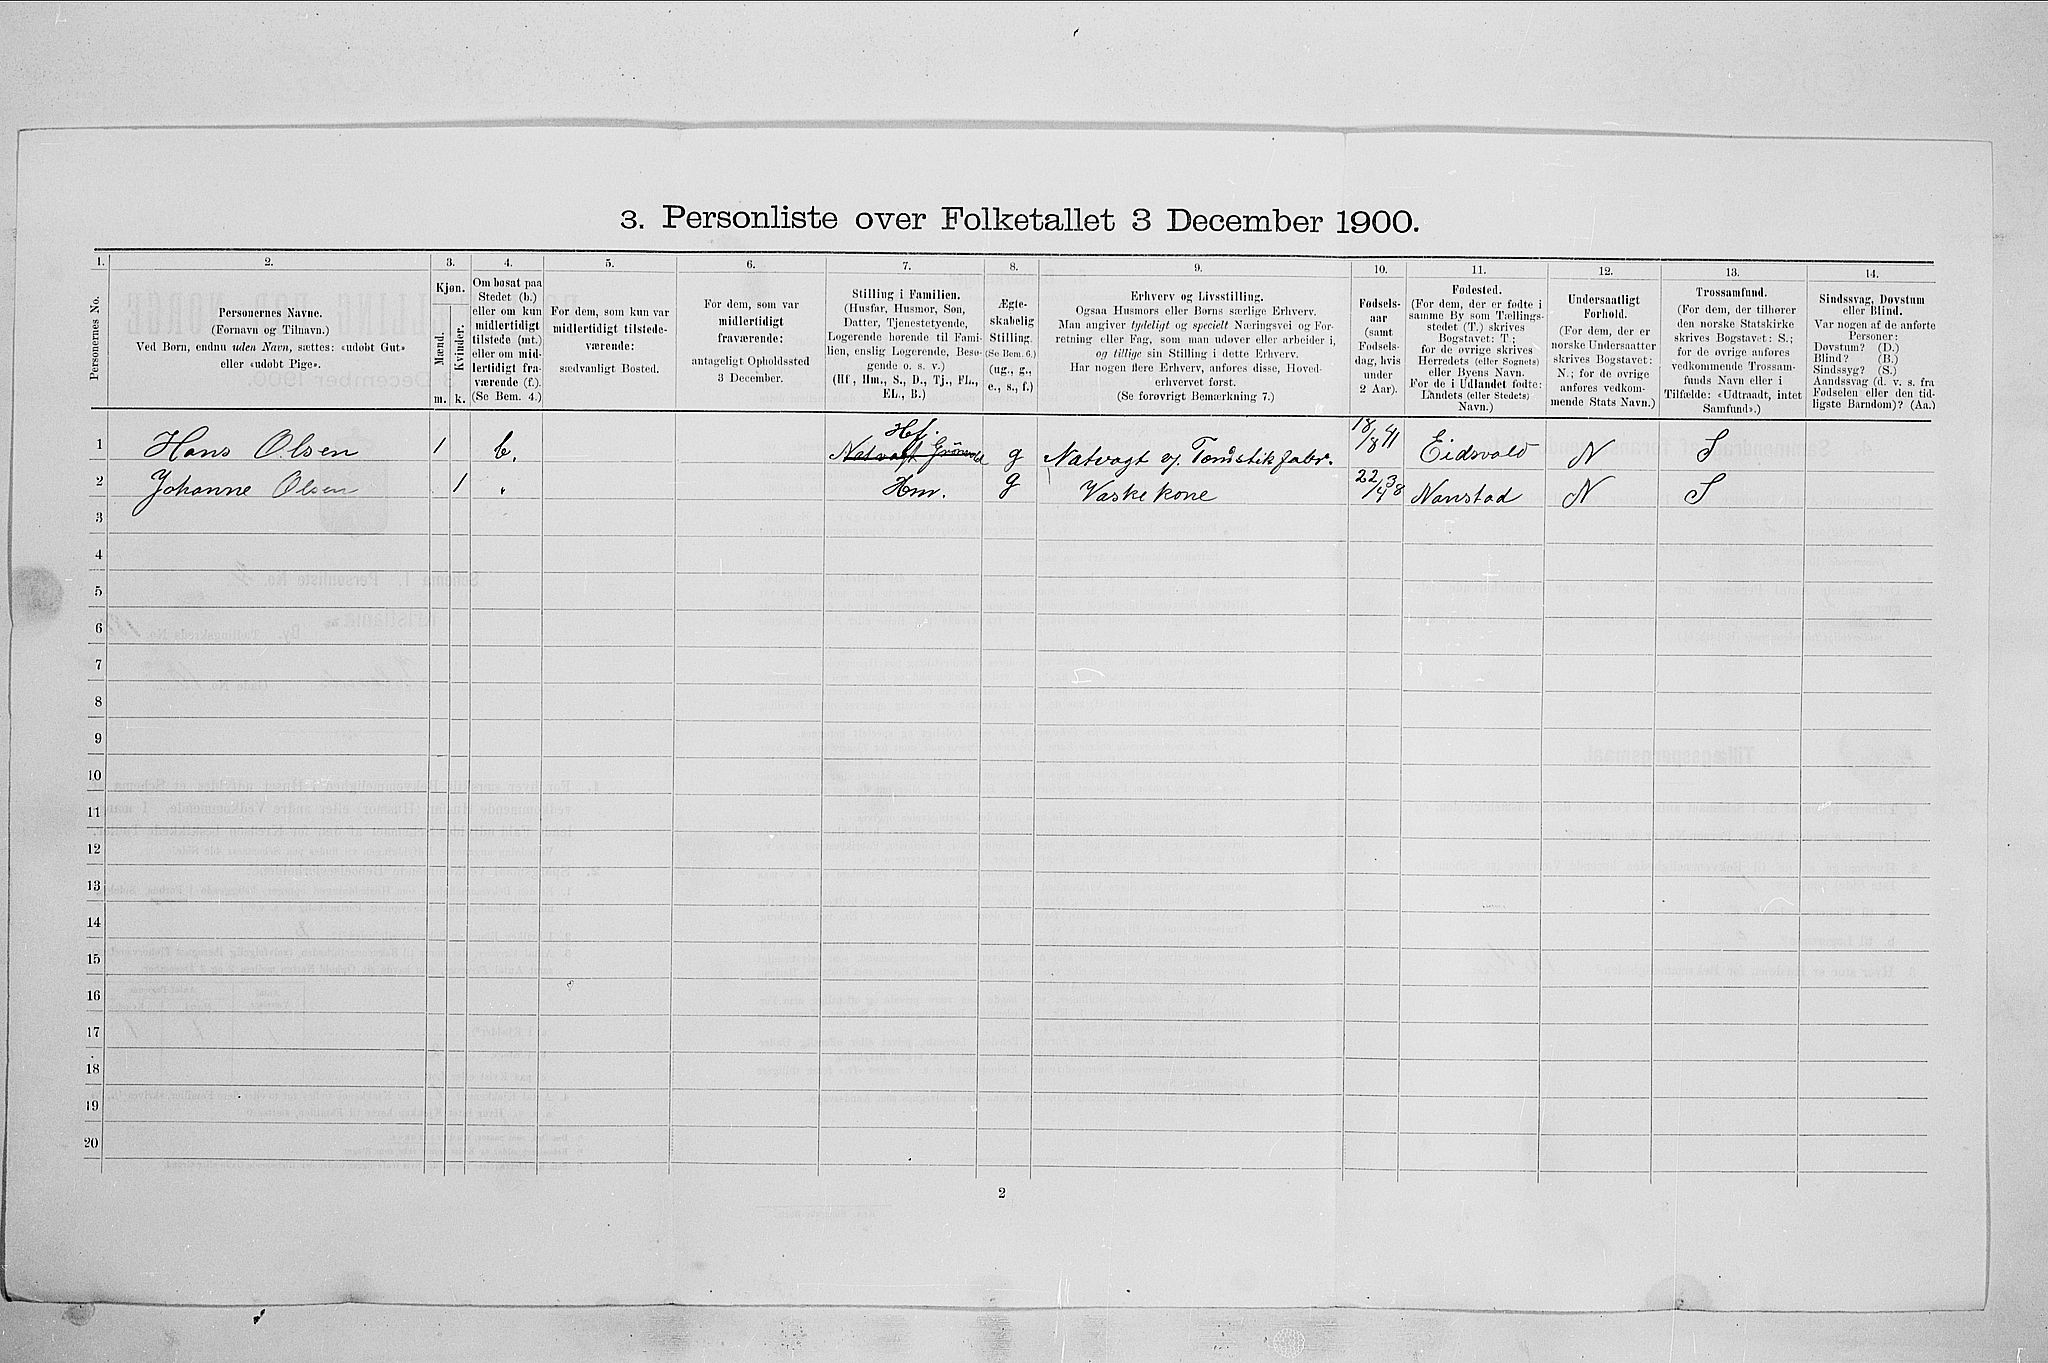 3. Personliste over Folketallet 3 December 1900.
1. 2. 3. 4. 5. 6. 7. 8. 9. 10. 11. 12. 13. 14.
Personernes No.
Personernes Navne.
(Fornavn og Tilnavn.)
Ved Børn, endnu uden Navn, sættes: «udøbt Gut»
eller «udøbt Pige».
Kjøn.
Mænd.
Kvinder.
m. k.
Om bosat paa
Stedet (b.)
eller om kun
midlertidigt
tilstede (mt.)
eller om mid-
lertidigt fra-
værende (f.).
(Se Bem. 4.)
For dem, som kun var
midlertidigt tilstede-
værende:
sædvanligt Bosted.
For dem, som var
midlertidigt
fraværende:
antageligt Opholdssted
3 December.
Stilling i Familien.
(Husfar, Husmor, Søn,
Datter, Tjenestetyende,
Logerende hørende til Fami-
lien, enslig Logerende, Besø-
gende o. s. v.)
(Hf., Hm., S., D., Tj., FL.,
EL., B.)
Ægte-
skabelig
Stilling.
(Se Bem. 6.)
(ug., g.,
e., s., f.)
Erhverv og Livsstilling.
Ogsaa Husmors eller Børns særlige Erhverv.
Man angiver tydeligt og specielt Næringsvei og For-
retning eller Fag, som man udøver eller arbeider i,
og tillige sin Stilling i dette Erhverv.
Har nogen flere Erhverv, anføres disse, Hoved-
erhvervet først.
(Se forøvrigt Bemærkning 7.)
Fødsels-
aar
(samt
Fødsels-
dag, hvis
under
2 Aar).
Fødested.
(For dem, der er fødte i
samme By som Tællings-
stedet (T.) skrives
Bogstavet: T.;
for de øvrige skrives
Herredets (eller Sognets)
eller Byens Navn.
For de i Udlandet fødte:
Landets (eller Stedets)
Navn.)
Undersaatligt
Forhold.
(For dem, der er
norske Undersaatter
skrives Bogstavet:
N.; for de øvrige
anføres vedkom-
mende Stats Navn.)
Trossamfund.
(For dem, der tilhører
den norske Statskirke
skrives Bogstavet: S.;
for de øvrige anføres
vedkommende Trossam-
funds Navn eller i
Tilfælde: «Udtraadt, intet
Samfund».)
Sindssvag, Døvstum
eller Blind.
Var nogen af de anførte
Personer:
Døvstum? (D.)
Blind? (B.)
Sindssyg? (S.)
Aandssvag (d. v. s. fra
Fødselen eller den tid-
ligste Barndom)? (Aa.)
1 Hans Olsen 1 b. Hf. g Natvagt v. Tændstikfabr. 18/8 41 Eidsvold N S
2 Johanne Olsen 1 " Hm. g Vaskekone 22/4 38 Nanstad N S
3
4
5
6
7
8
9
10
11
12
13
14
15
16
17
18
19
20
2